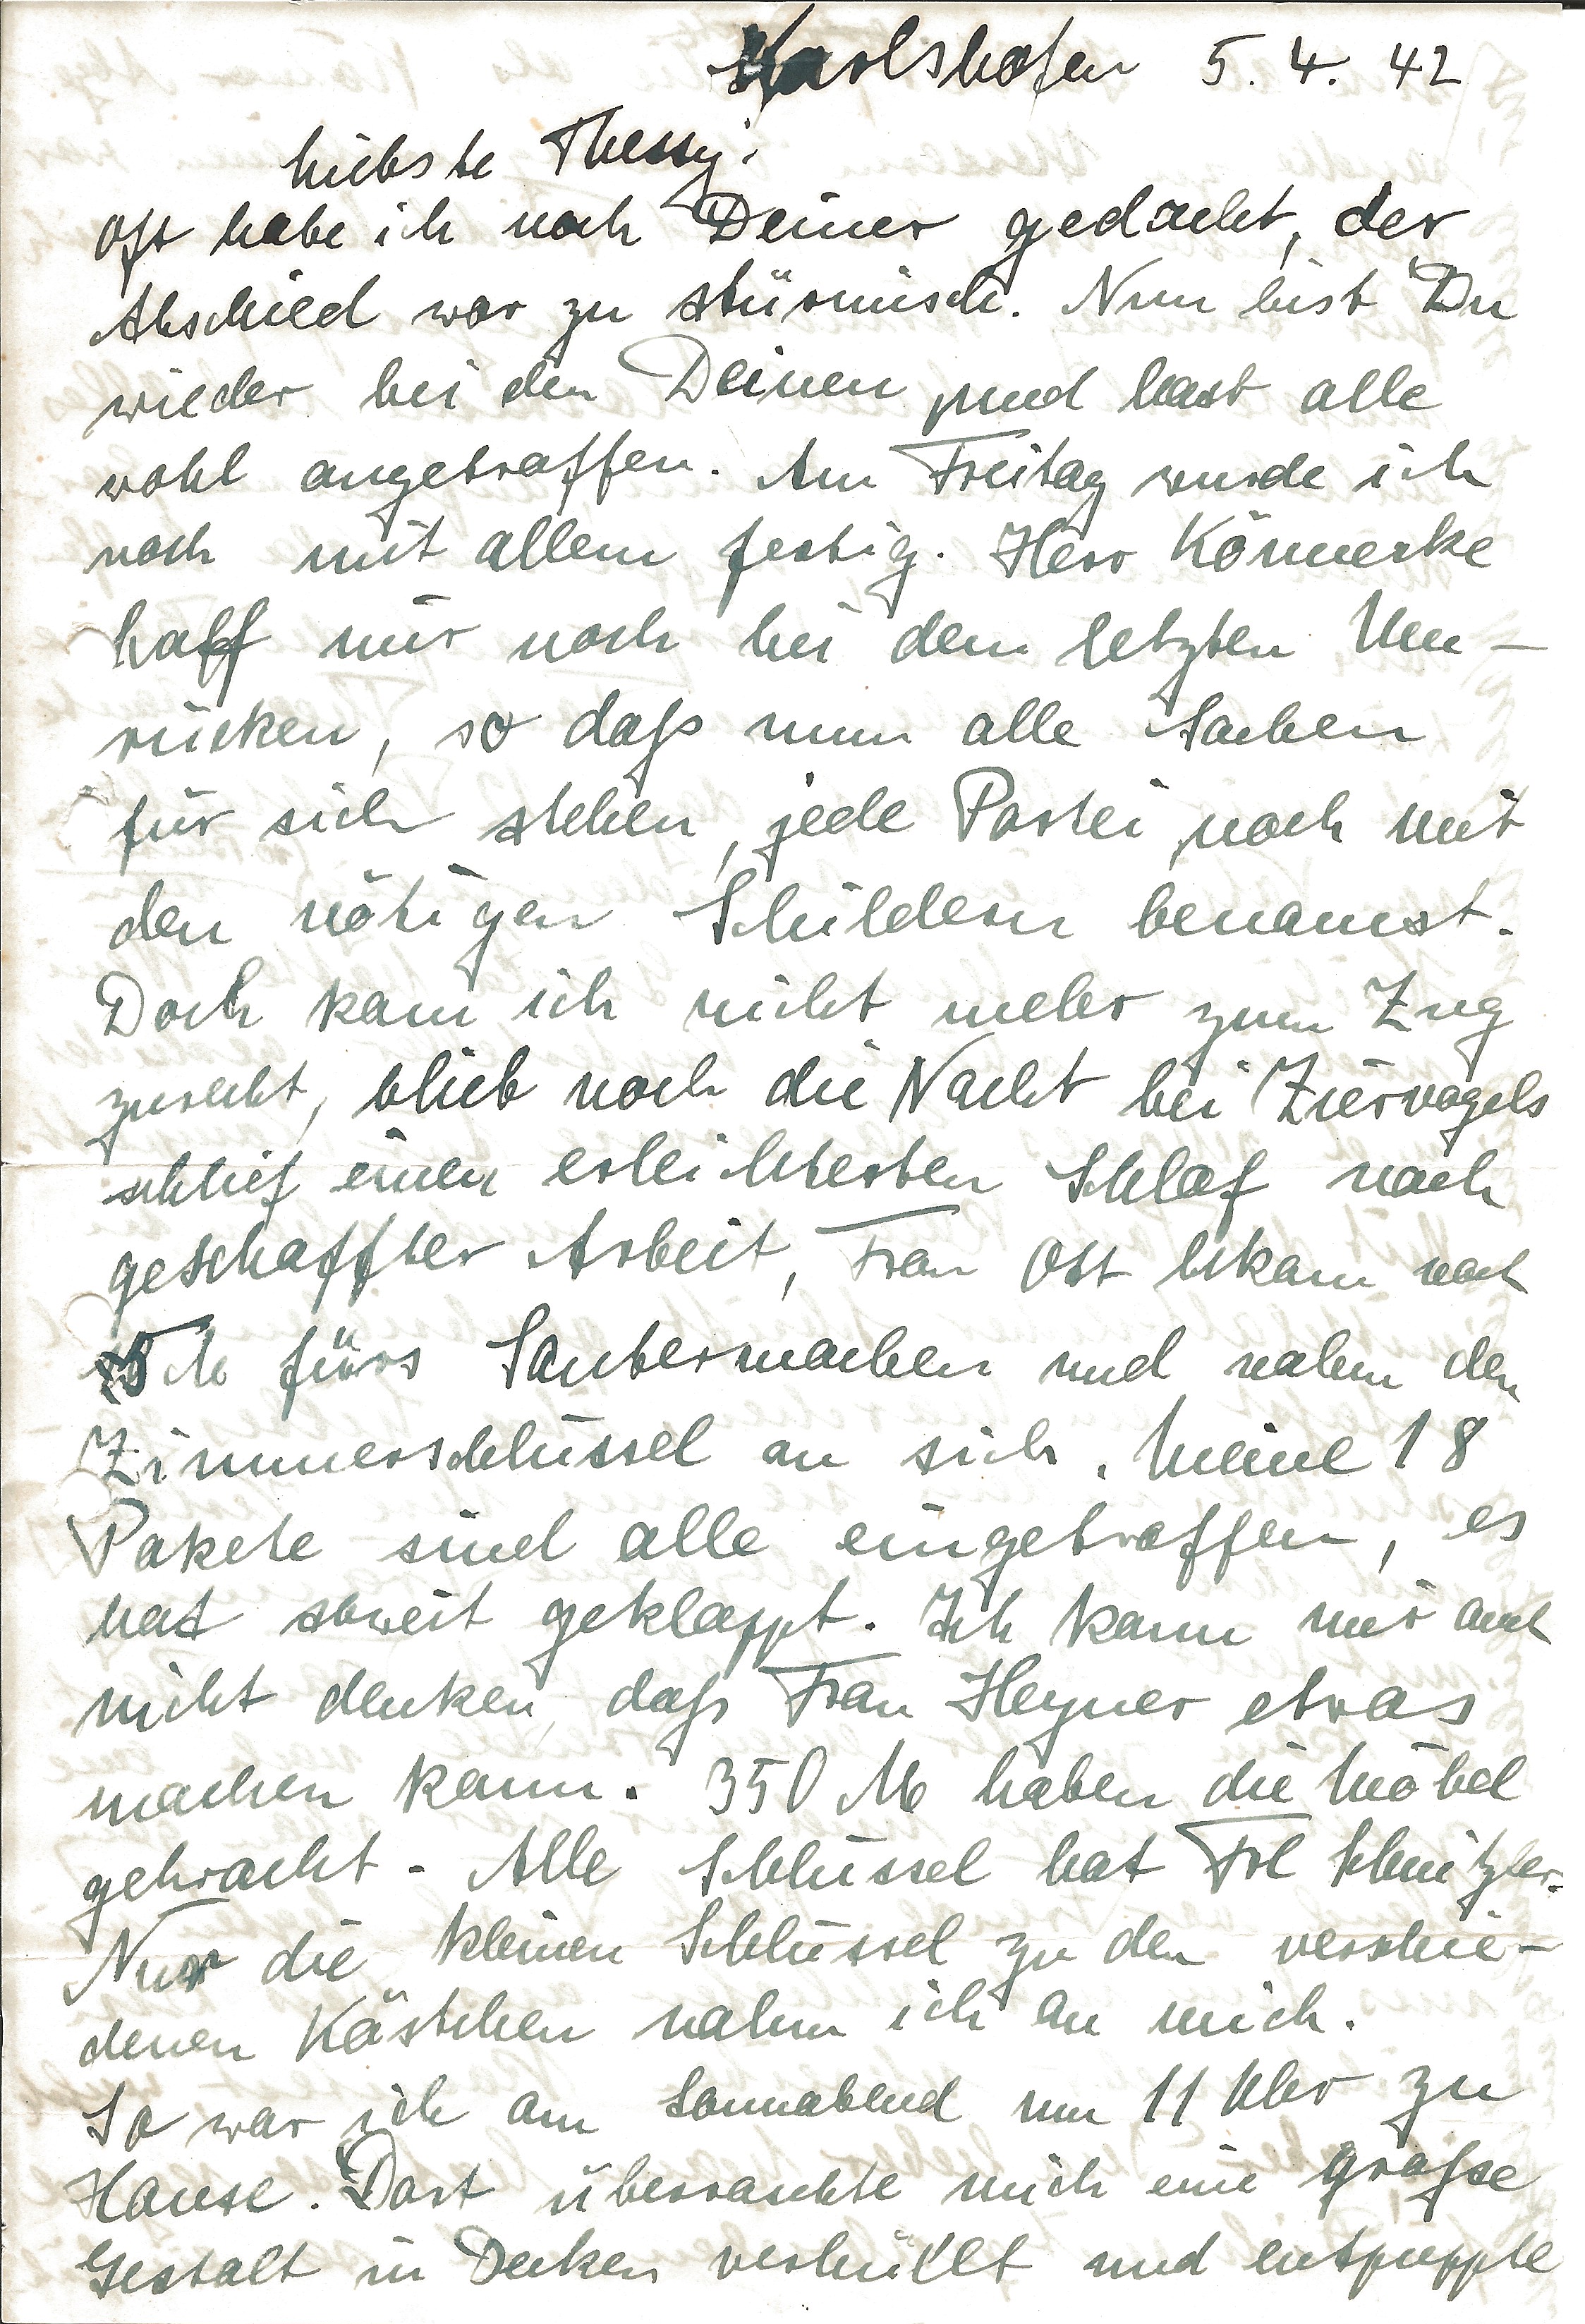 Karlshofen 5. 4. 42
Liebste Thessy!
Oft habe ich noch Deiner gedacht, der
Abschied war zu stürmisch. Nun bist Du
wieder bei den Deinen und hast alle
wohl angetroffen. Am Freitag wurde ich
noch mit allem fertig. Herr Könnerke
half mir noch bei dem letzten Um-
rücken, so daß nun alle Sachen
für sich stehen, jede Partei noch mit
den nötigen Schildern benannt.
Doch kam ich nicht mehr zum Zug
zurecht, blieb noch die Nacht bei Ziervogels
schlief einen erleichterten Schlaf nach
geschaffter Arbeit, Frau Ott bekam noch
5 M fürs Saubermachen und nahm den
Zimmerschlüssel an sich. Meine 18
Pakete sind alle eingetroffen, es
hat soweit geklappt. Ich kann mir auch
nicht denken, daß Frau Heyner etwas
machen kann. 350 M haben die Möbel
gebracht. Alle Schlüssel hat Frl Schnitzler.
Nur die kleinen Schlüssel zu den verschie-
denen Kästchen nahm ich an mich.
So war ich am Sonnabend um 11 Uhr zu
Hause. Dort überraschte mich eine große
Gestalt in Decken verhüllt und entpuppte